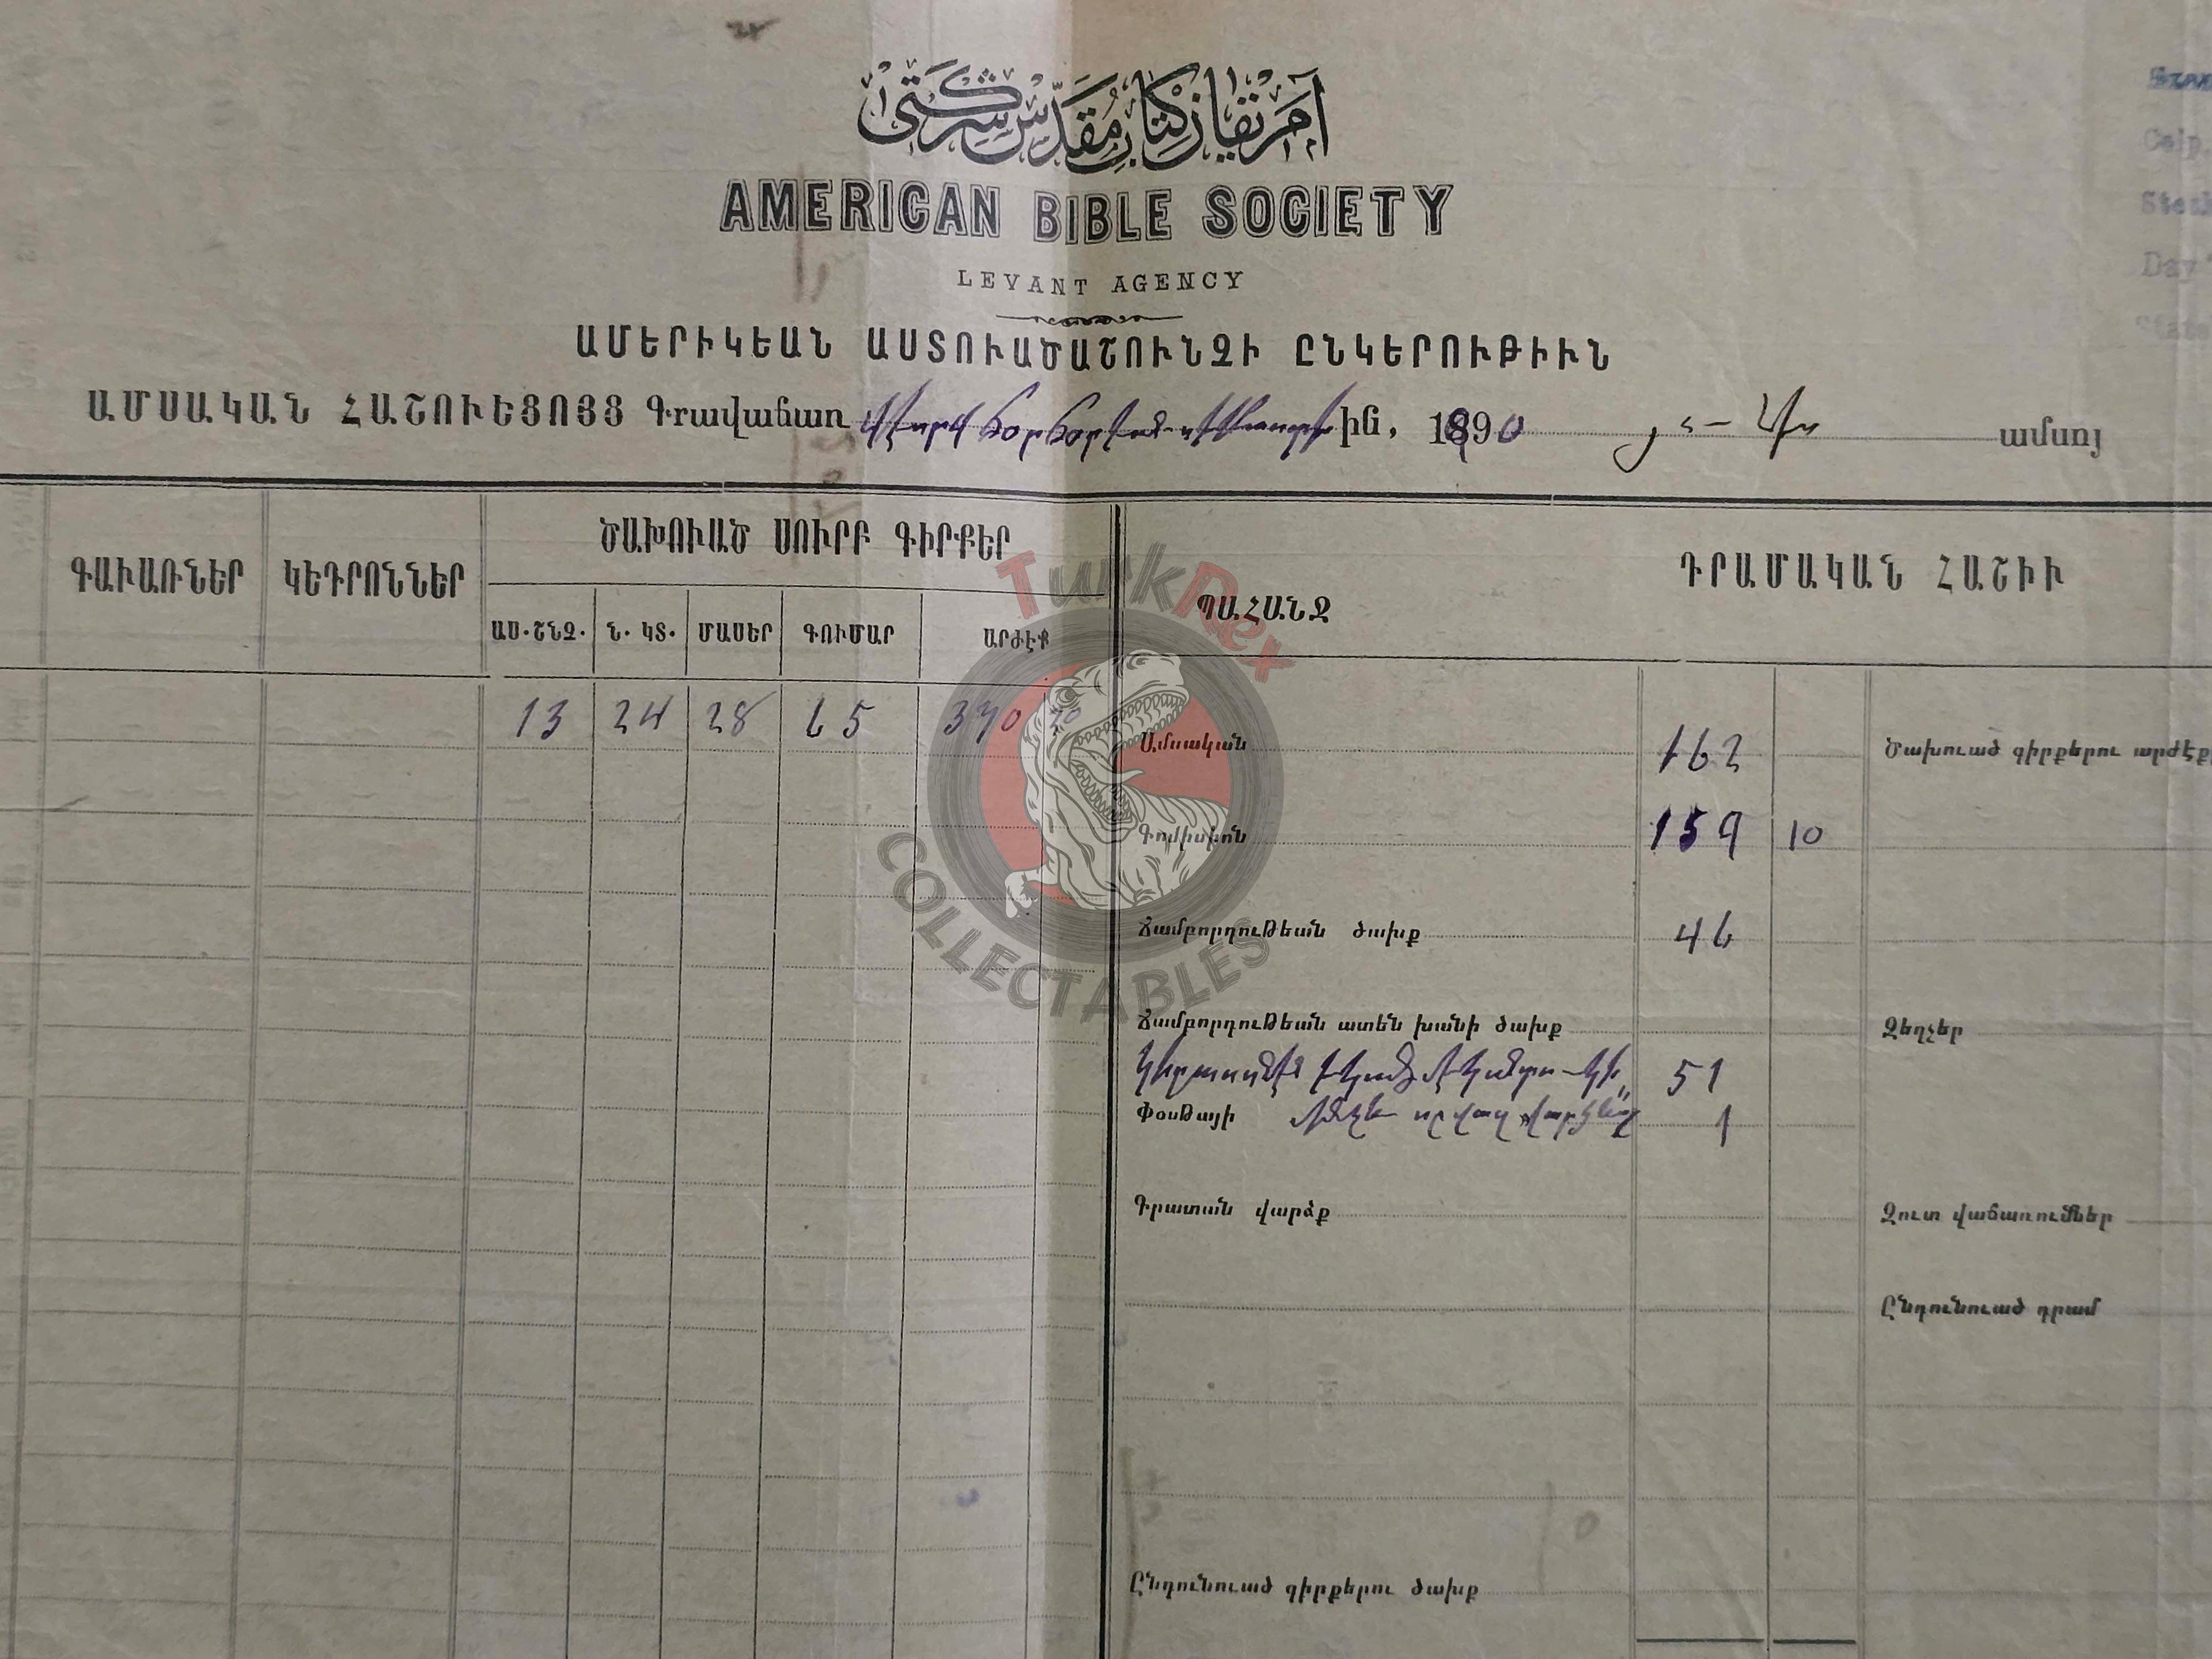 آمریقان کتاب مقدس شرکتی
AMERICAN BIBLE SOCIETY
LEVANT AGENCY
ԱՄԵՐԻԿԵԱՆ ԱՍՏՈՒԱԾԱՇՈՒՆՉԻ ԸՆԿԵՐՈՒԹԻՒՆ
ԱՄՍԱԿԱՆ ՀԱՇՈՒԵՑՈՅՑ Գրավաճառ ին, 1890 ամսոյ
ԳԱՒԱՌՆԵՐ ԿԵԴՐՈՆՆԵՐ ԾԱԽՈՒԱԾ ՍՈՒՐԲ ԳԻՐՔԵՐ
ԱՍ.ՇՆՉ. Ն. ԿՏ. ՄԱՍԵՐ ԳՈՒՄԱՐ ԱՐԺԷՔ
13 24 28 65 370 20
ԴՐԱՄԱԿԱՆ ՀԱՇԻՒ
ՊԱՀԱՆՋ
Ամսական 162 Ծախուած գիրքերու արժէքը
Գոմիսիոն 159 10
Ճամբորդութեան ծախք 46
Ճամբորդութեան ատեն խանի ծախք Զեղչեր
51
Փօսթայի 1
Գրատան վարձք Զուտ վաճառումներ
Ընդունուած դրամ
Ընդունուած գիրքերու ծախք
TurkRex
COLLECTABLES